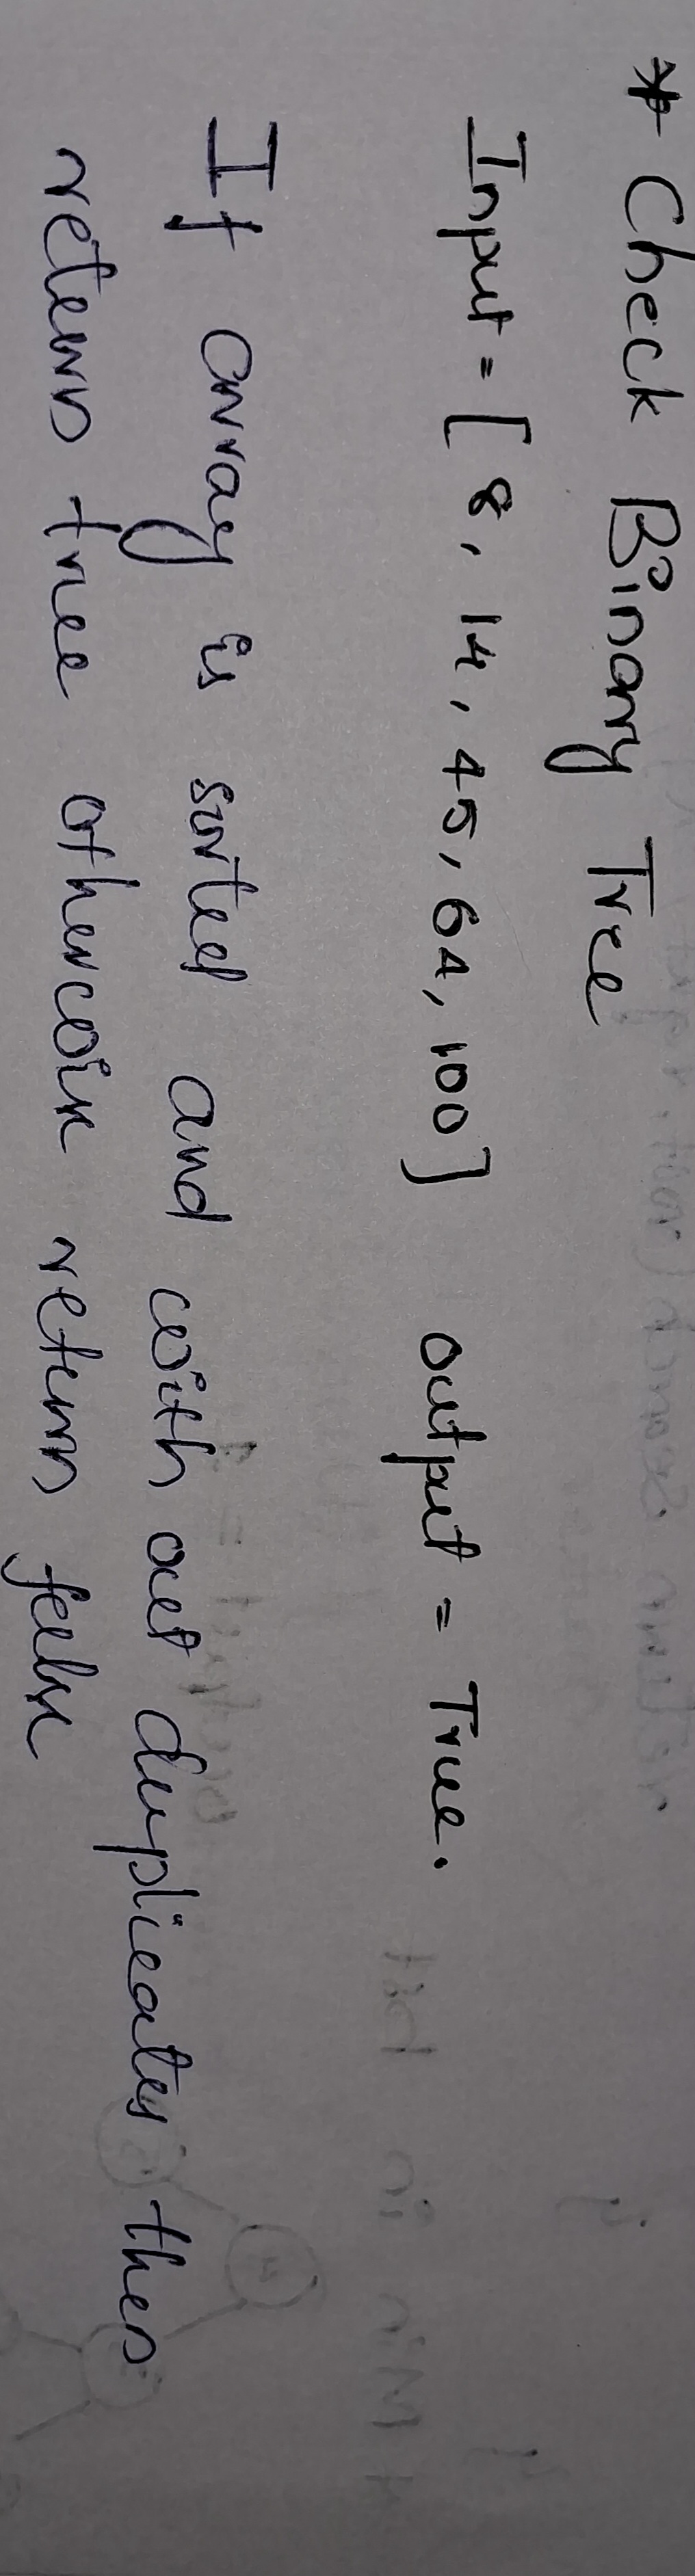 * Check Binary Tree
Input = [8, 14, 45, 64, 100] output = True.
If array is sorted and with out duplicates then
return true otherwise return false